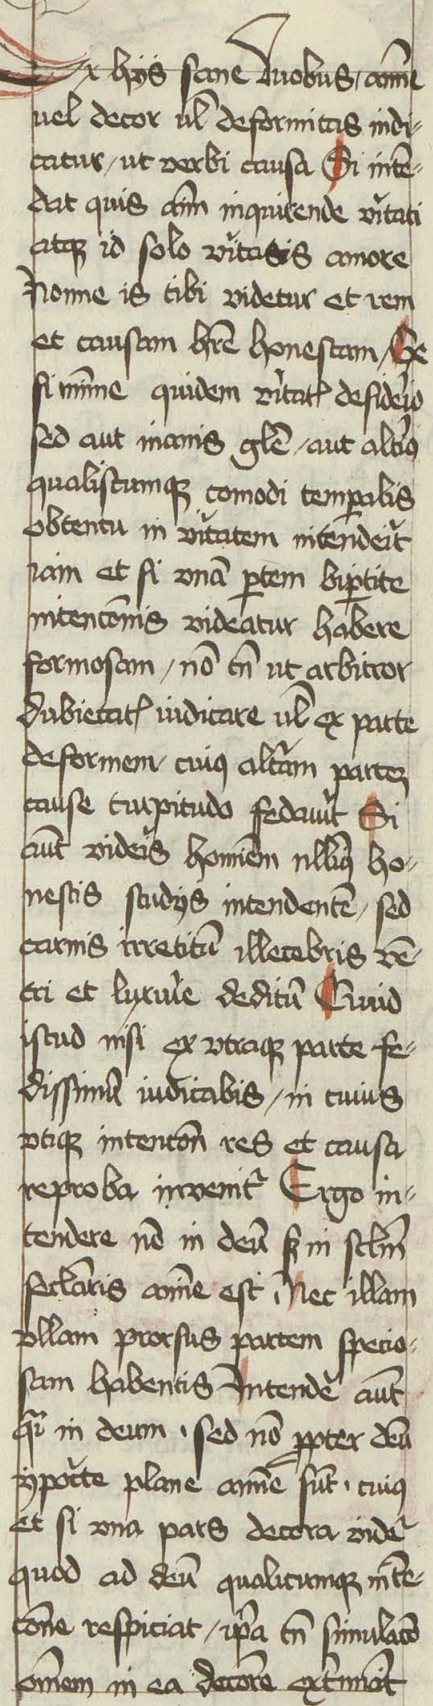 Ex hijs sane duobus, anīe
uel decor ul̄ deformitas indi-
catur / ut verbi causa Si intē-
dat quis aīm inquirende vītati
atq̄ id solo vītatis amore
Nonne is tibi videtur et rem
et causam hr̄e honestam / Se
si mīme quidem vītat̄ desiderio
sed aut inanis glē / aut altīus
qualiscumq̄ comodi temꝑalis
obtentu in vītatem intenderīt
iam et si vnā ꝑtem biꝑtite
intencōnis videatur habere
formosam / nō tn̄ ut arbitror
dubietat̄ iudicare ul̄ ex parte
deformem / cuiꝰ altrām partez
cause turpitudo fedauīt Si
aūt videris homiēm nllīs ho-
nestis studijs intendentē / sed
carnis irretitū illecebris vē-
tri et luxurie deditū Quid
istud nisi ex vtraque parte fe-
dissimū iudicabis / in cuius
vtiq̄ intencōn res et causa
reproba inuenit̄ Ergo in-
tendere nō in deū sꝫ in sclm̄
seclāris anīe est Nec illam
vllam prorsus partem specio-
sam habentis Intendē aūt
qr̄ in deum . sed nō ꝓpter deū
ypocīte plane anīe sūt . cuiꝰ
et si vna pars decora vidē
quod ad deū qualicumq̄ intē-
cōne respiciat / ipā tn̄ simulatō
omēm in ea decorē extīmīt